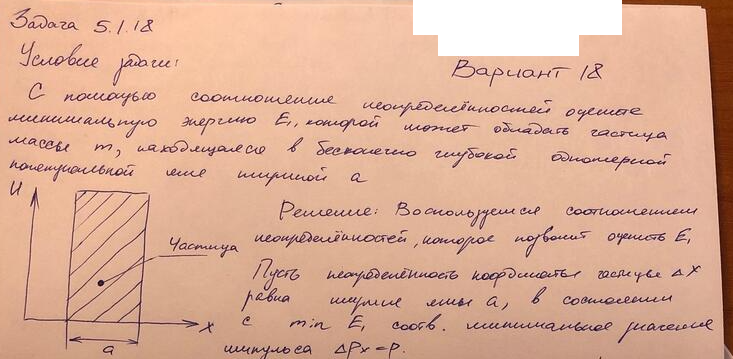 Задача 5.1.18
Условие задачи:
Вариант 18
С помощью соотношение неопределённостей оцените
минимальную энергию E₁, которой может обладать частица
массы m, находящаяся в бесконечно глубокой одномерной
потенциальной яме шириной a
U
Частица
a
x
Решение: Воспользуемся соотношением
неопределённостей, которое позволит оценить E₁
Пусть неопределённость координаты частицы Δx
равна ширине ямы a, в состоянии
с min E₁ соотв. минимальное значение
импульса ΔPx=P.